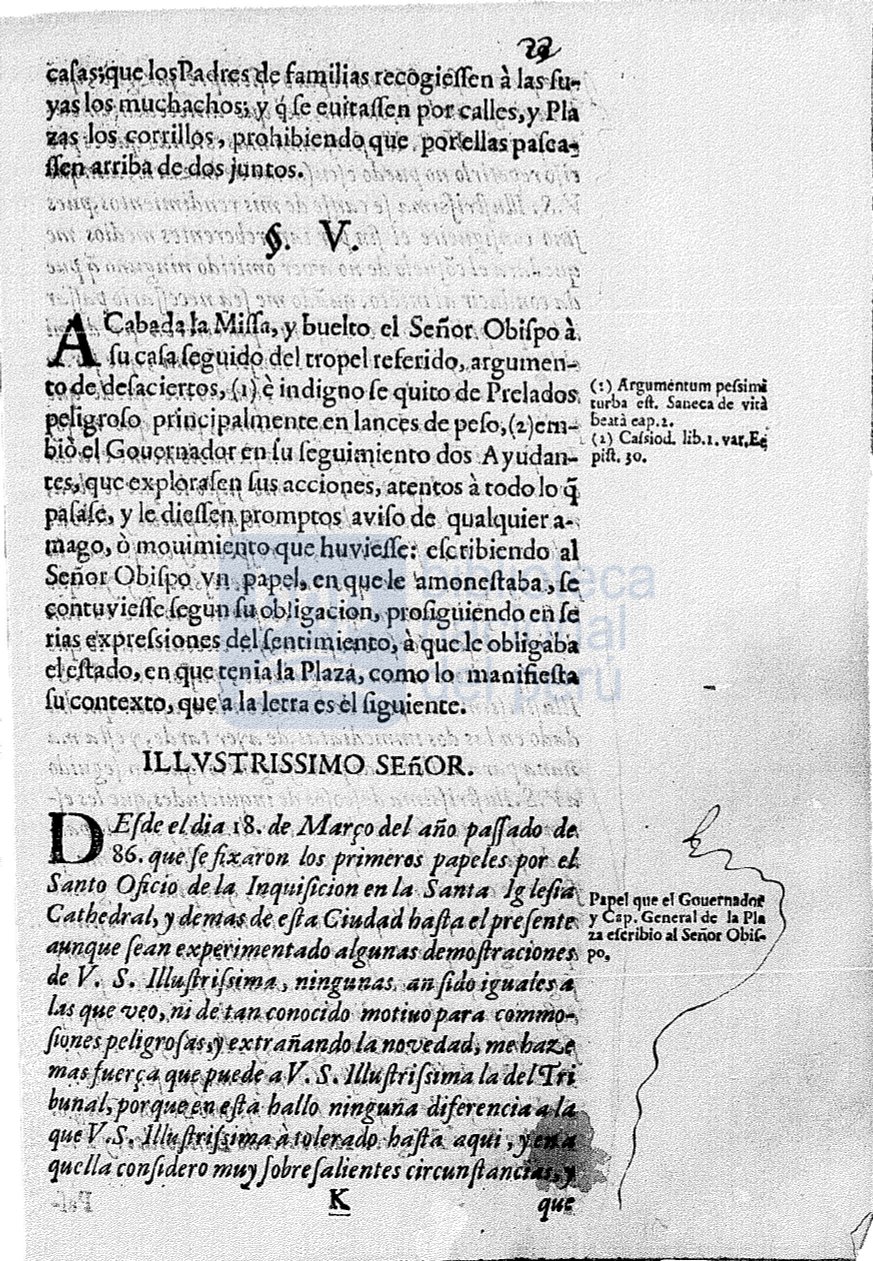 23
casas; que los Padres de familias recogiessen à las su-
yas los muchachos; y q̃ se euitassen por calles, y Pla
zas los corrillos, prohibiendo que por ellas pasea-
ssen arriba de dos juntos.
§. V.
ACabada la Missa, y buelto el Señor Obispo à
su casa seguido del tropel referido, argumen-
to de desaciertos, (1) è indigno se quito de Prelados
peligroso principalmente en lances de peso, (2) em-
biò el Gouernador en su seguimiento dos Ayudan-
tes, que explorasen sus acciones, atentos à todo lo q̃
pasase, y le diessen promptos aviso de qualquier a-
mago, ò mouimiento que huviesse: escribiendo al
Señor Obispo vn papel, en que le amonestaba, se
contuviesse segun su obligacion, prosiguiendo en se
rias expressiones del sentimiento, à que le obligaba
el estado, en que tenia la Plaza, como lo manifiesta
su contexto, que a la letra es el siguiente.
(1) Argumentum pessimi
turba est. Saneca de vità
beatà cap. 2.
(2) Cassiod. lib. 1. var. Ee
pist. 30.
ILLVSTRISSIMO SEñOR.
DEsde el dia 18. de Março del año passado de
86. que se fixaron los primeros papeles por el
Santo Oficio de la Inquisicion en la Santa Iglesia
Cathedral, y demas de esta Ciudad hasta el presente
aunque sean experimentado algunas demostraciones
de V. S. Illustrissima, ningunas an sido iguales a
las que veo, ni de tan conocido motiuo para commo-
siones peligrosas, y extrañando la novedad, me haze
mas fuerça que puede a V. S. Illustrissima la del Tri
bunal, porque en esta hallo ninguna diferencia a la
que V. S. Illustrissima à tolerado hasta aqui, y en a
quella considero muy sobresalientes circunstancias, y
Papel que el Gouernador
y Cap. General de la Pla
za escribio al Señor Obis-
po,
K
que
biblioteca
nacional
del perú